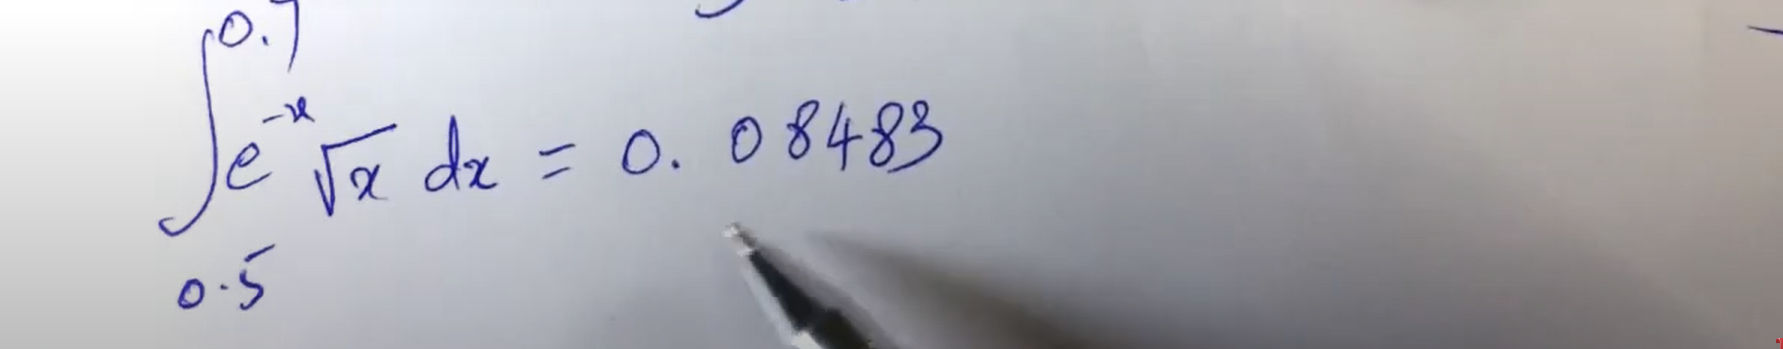 ∫_{0.5}^{0.7} e^{-x} √x dx = 0.08483